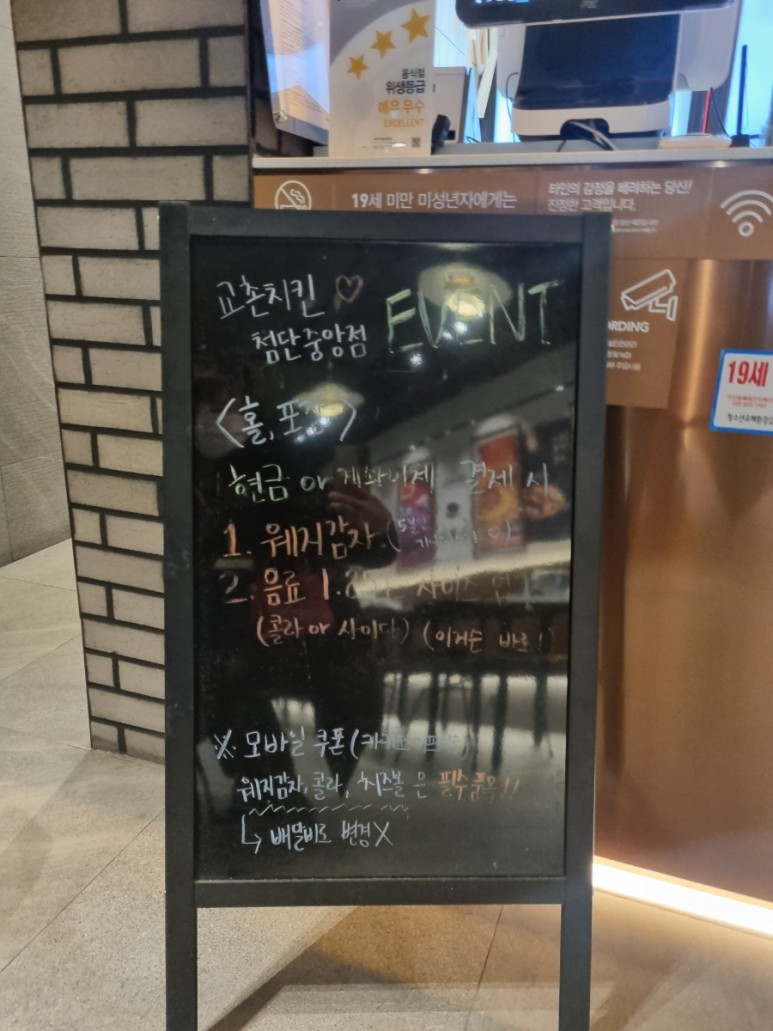 음식점
위생등급
매우우수
EXCELLENT
19세 미만 미성년자에게는
타인의 감정을 배려하는 당신!
진정한 고객입니다.
ORDING
19세
교촌치킨 ♡ EVENT
첨단중앙점
<홀, 포장>
현금 or 계좌이체 결제 시
1. 웨지감자 (5분만
2. 음료 1.25 사이즈업
(콜라 or 사이다) (이거슨 바로!)
※ 모바일 쿠폰 (카카오
웨지감자, 콜라, 치즈볼 은 필수품목!!
↳ 배달비로 변경X